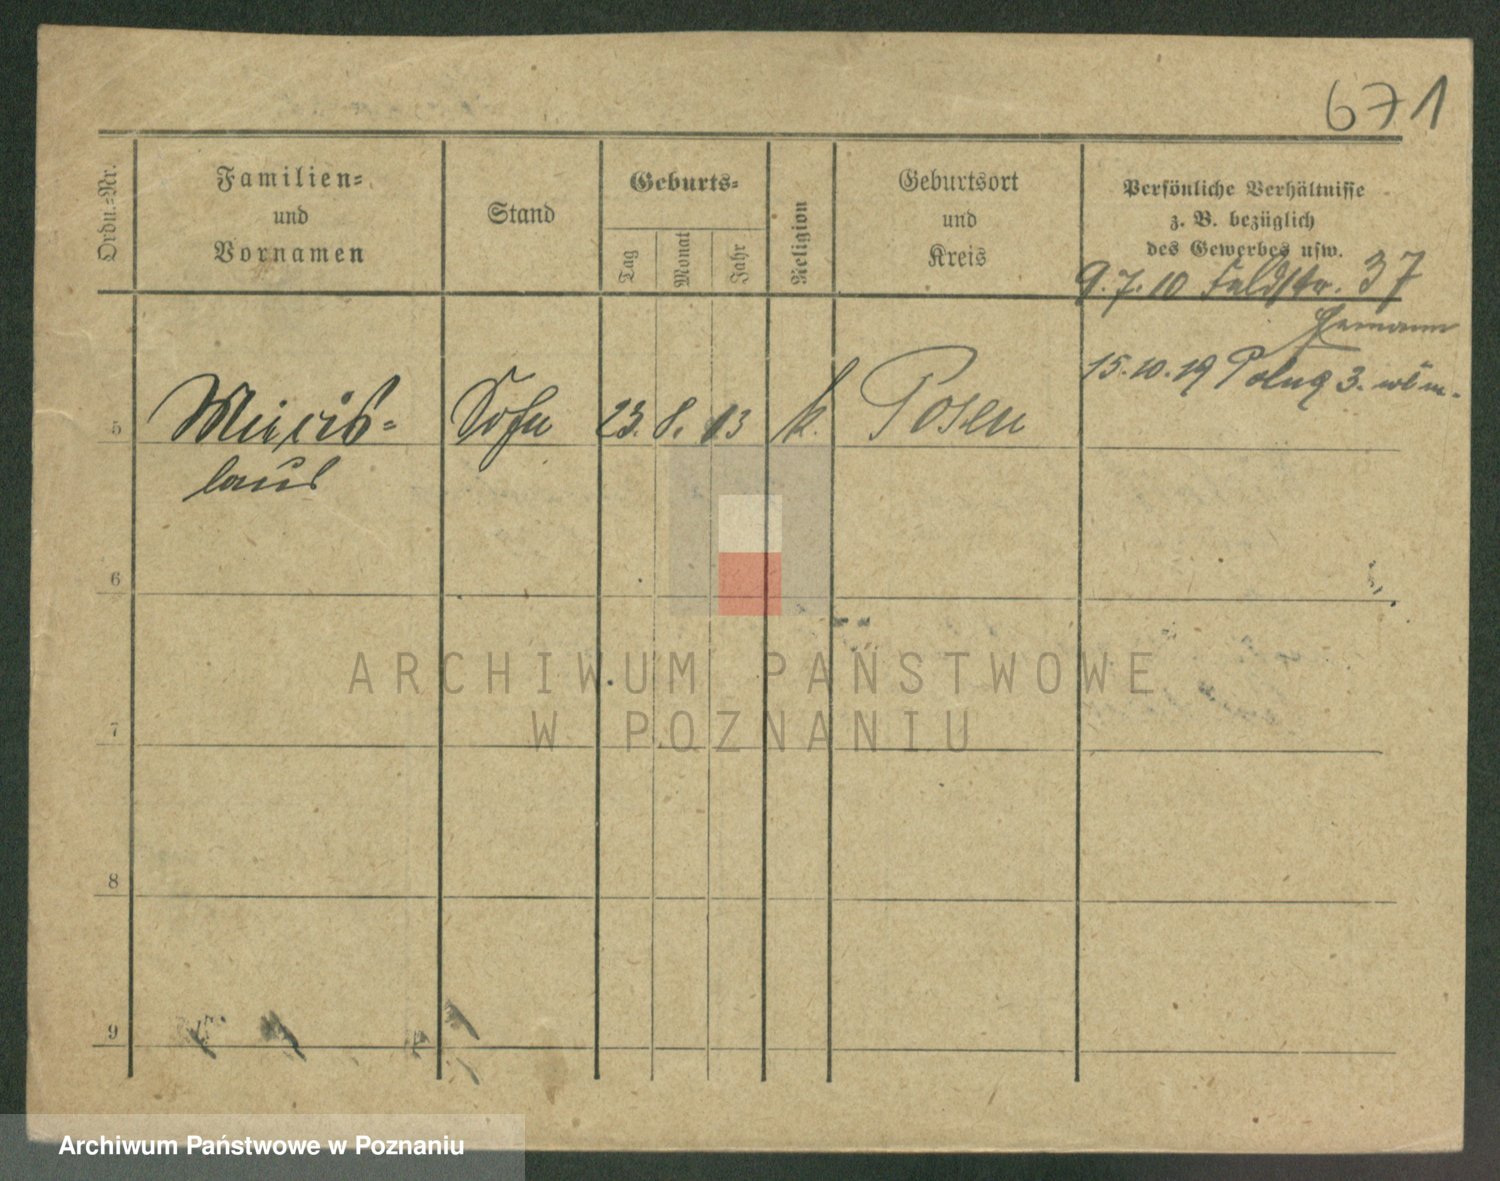 671
Ordn.-Nr.
Familien-
und
Vornamen
Stand
Geburts-
Tag
Monat
Jahr
Religion
Geburtsort
und
Kreis
Persönliche Verhältnisse
z. B. bezüglich
des Gewerbes usw.
9.7.10 Feldstr. 37
15.10.19
5
Miecis-
laus
Sohn
23. 8. 13
k.
Posen
6
7
8
9
ARCHIWUM PAŃSTWOWE
W POZNANIU
Archiwum Państwowe w Poznaniu